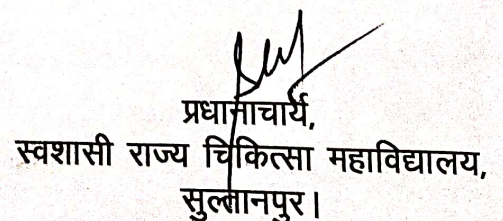 प्रधानाचार्य,
स्वशासी राज्य चिकित्सा महाविद्यालय,
सुल्तानपुर।